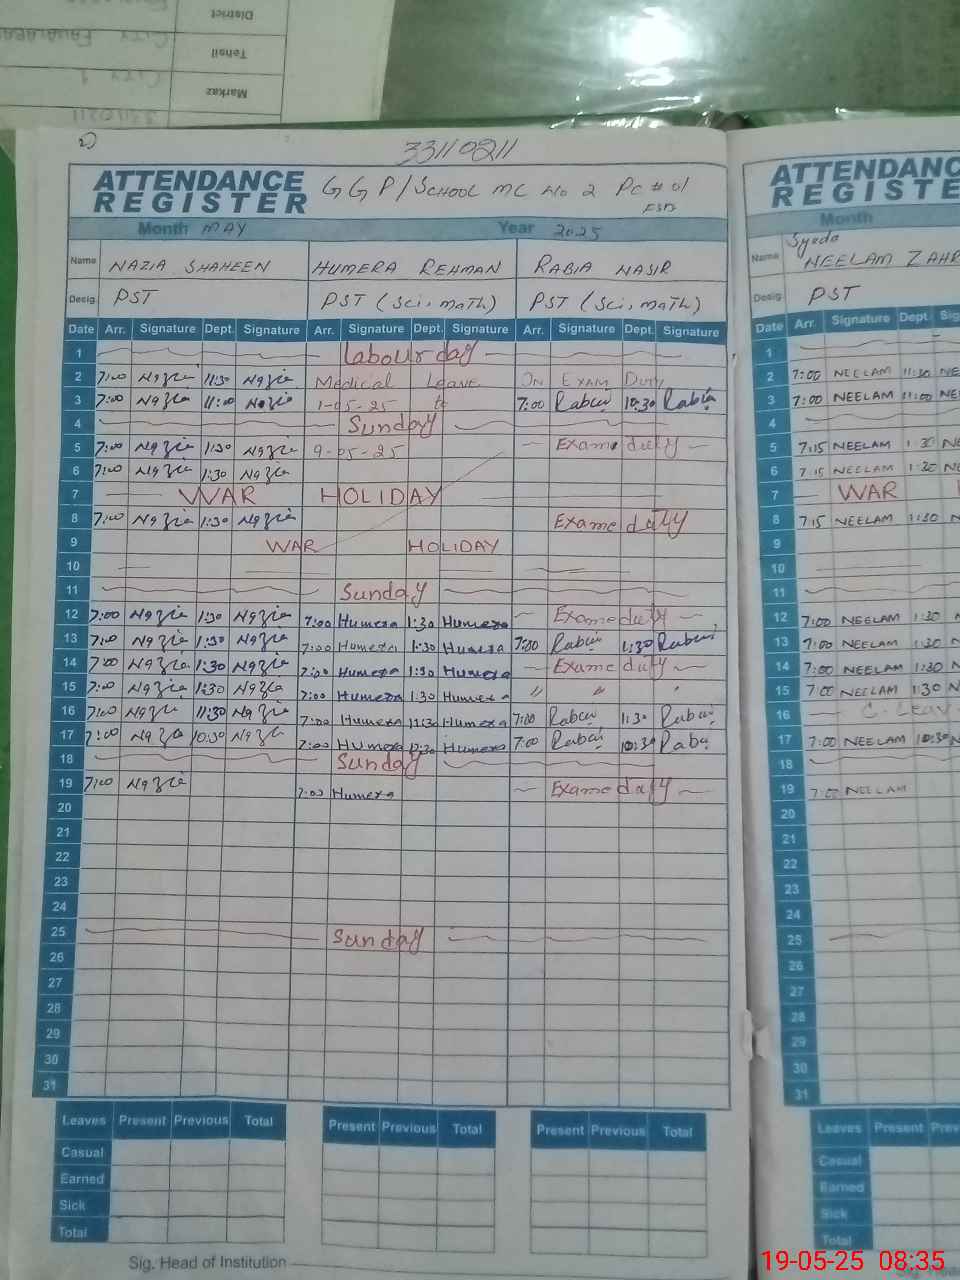 District
Tehsil
Markaz
2)
33110211
ATTENDANCE REGISTER GGP/SCHOOL MC No 2 PC # 01
FSD
Month MAY Year 2025
Name NAZIA SHAHEEN HUMERA REHMAN RABIA NASIR
Desig. PST PST (Sci, maTh) PST (Sci, maTh)
Date Arr. Signature Dept. Signature Arr. Signature Dept. Signature Arr. Signature Dept. Signature
1 Labour day
2 7:00 Nazia 11:30 Nazia Medical Leave On EXAM Duty
3 7:00 Nazia 11:00 Nazia 1-05-25 to 7:00 Rabia 10:30 Rabia
4 Sunday
5 7:00 Nazia 1:30 Nazia 9-05-25 Exame duty
6 7:00 Nazia 1:30 Nazia
7 WAR HOLIDAY
8 7:00 Nazia 1:30 Nazia Exame duty
9 WAR HOLIDAY
10
11 Sunday
12 7:00 Nazia 1:30 Nazia 7:00 Humera 1:30 Humera Exame duty
13 7:00 Nazia 1:30 Nazia 7:00 Humera 1:30 Humera 7:00 Rabia 1:30 Rabia
14 7:00 Nazia 1:30 Nazia 7:00 Humera 1:30 Humera Exame duty
15 7:00 Nazia 1:30 Nazia 7:00 Humera 1:30 Humera " " "
16 7:00 Nazia 11:30 Nazia 7:00 Humera 11:30 Humera 7:00 Rabia 11:30 Rabia
17 7:00 Nazia 10:30 Nazia 7:00 HUmera 10:30 Humera 7:00 Rabia 10:30 Rabia
18 Sunday
19 7:00 Nazia 7:00 Humera Exame duty
20
21
22
23
24
25 Sunday
26
27
28
29
30
31
Leaves Present Previous Total Present Previous Total Present Previous Total
Casual
Earned
Sick
Total
Sig. Head of Institution
ATTENDANCE
REGISTER
Month
Name Syeda NEELAM ZAHR
Desig. PST
Date Arr. Signature Dept. Sig
1
2 7:00 NEELAM 11:30 NE
3 7:00 NEELAM 11:00 NE
4
5 7:15 NEELAM 1:30 N
6 7:15 NEELAM 1:30 NE
7 WAR
8 7:15 NEELAM 1:30 N
9
10
11
12 7:00 NEELAM 1:30 N
13 7:00 NEELAM 1:30 N
14 7:00 NEELAM 1:30 N
15 7:00 NEELAM 1:30 N
16 C. Leav
17 7:00 NEELAM 10:30 N
18
19 7:00 NEELAM
20
21
22
23
24
25
26
27
28
29
30
31
Leaves Present Prev
Casual
Earned
Sick
Total
19-05-25 08:35